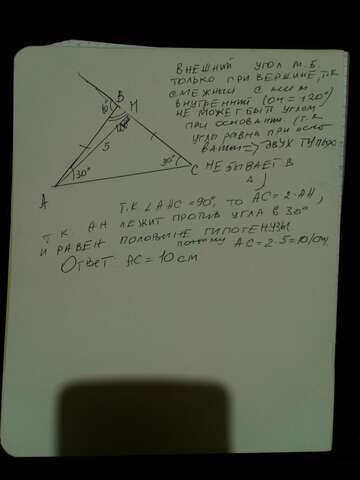 ВНЕШНИЙ УГОЛ М.Б
ТОЛЬКО ПРИ ВЕРШИНЕ, Т.К
СМЕЖНЫЙ С НИМ
ВНУТРЕННИЙ (ОН = 120°)
НЕ МОЖЕТ БЫТЬ УГЛОМ
ПРИ ОСНОВАНИИ (Т.К
УГЛЫ РАВНЫ ПРИ
ДВУХ ТУПЫХ
НЕ БЫВАЕТ В
Δ)
60°
B
H
120°
5
30°
30°
C
A
Т.К ∠AHC = 90°, ТО AC = 2·AH,
Т.К. AH ЛЕЖИТ ПРОТИВ УГЛА В 30°
И РАВЕН ПОЛОВИНЕ ГИПОТЕНУЗЫ
поэтому AC = 2·5 = 10(см)
ОТВЕТ AC = 10 см